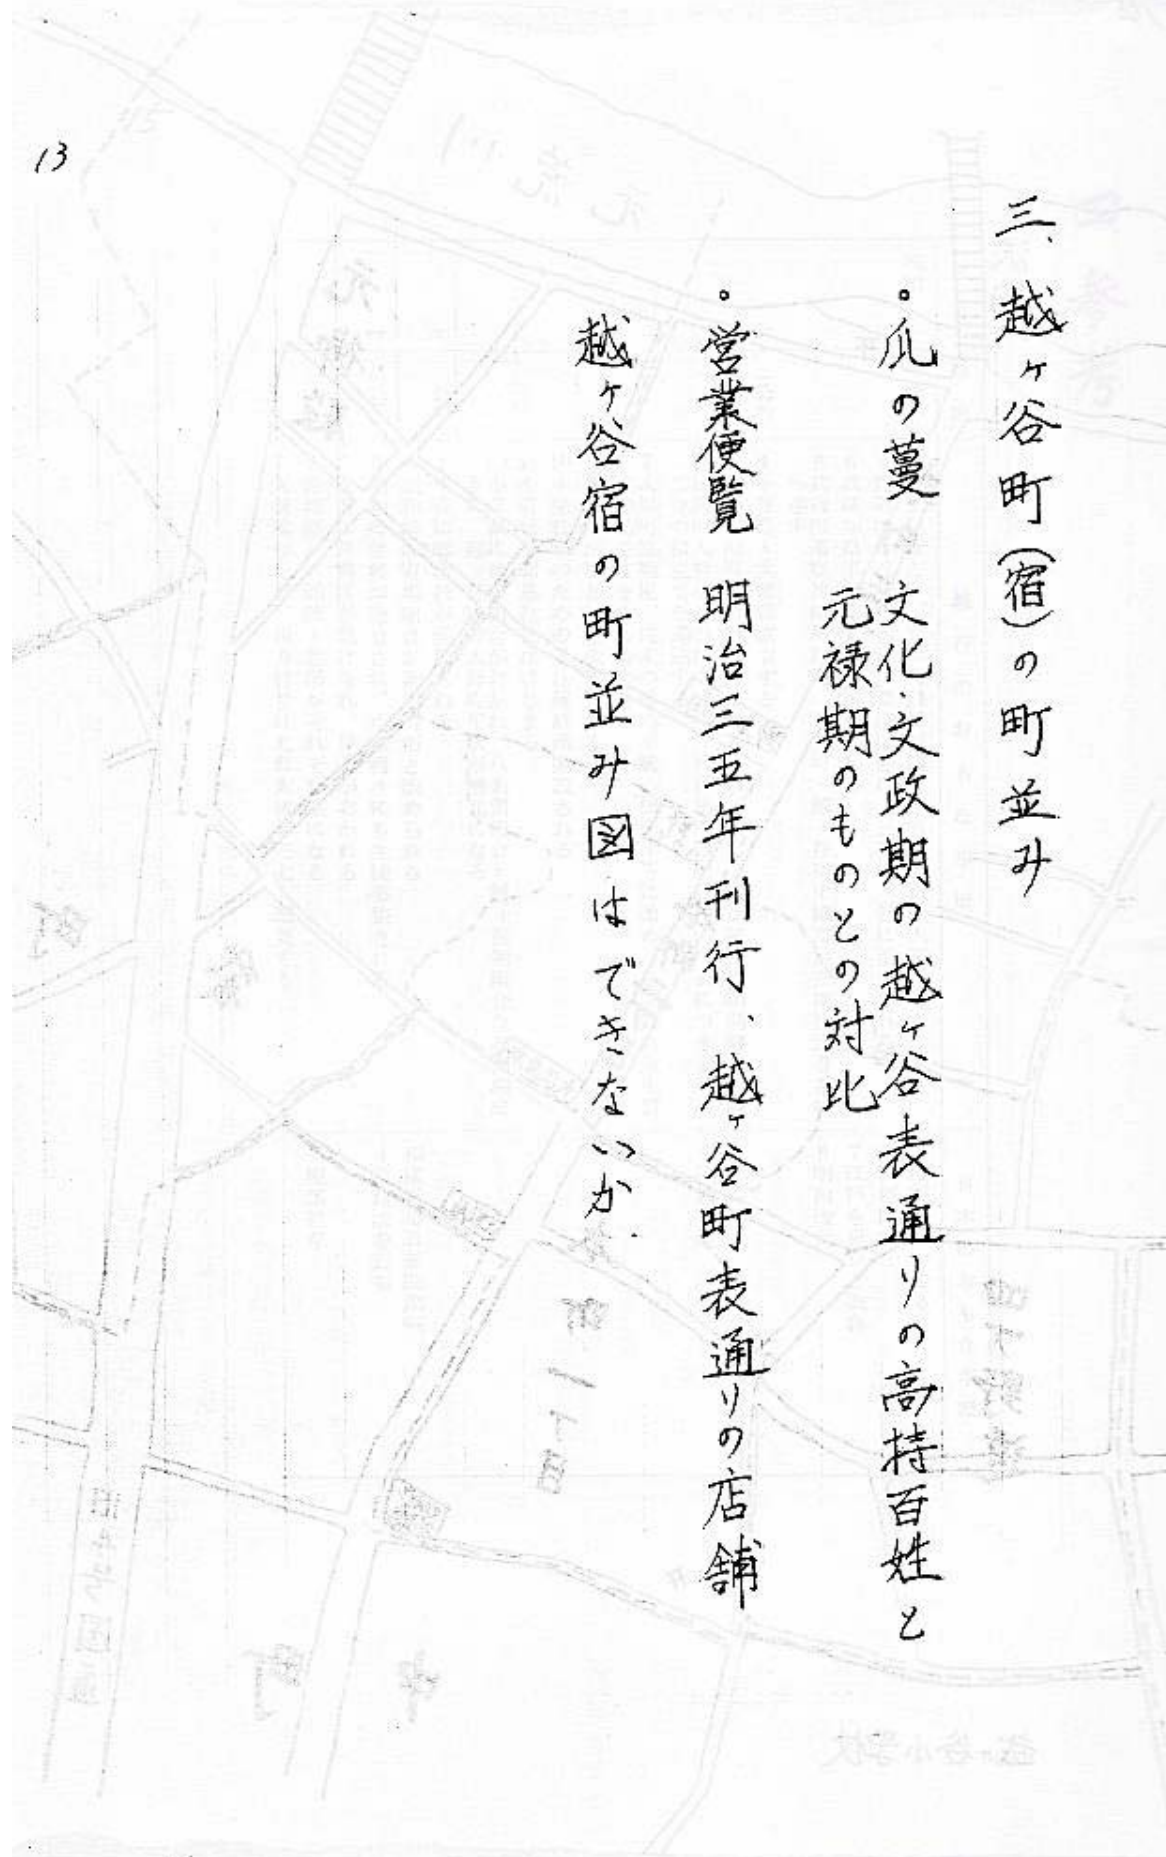 三、越ヶ谷町(宿)の町並み
。瓜の蔓 文化・文政期の越ヶ谷表通りの高持百姓と
元禄期のものとの対比
。営業便覧 明治三五年刊行、越ヶ谷町表通りの店舗
越ヶ谷宿の町並み図はできないか.
13